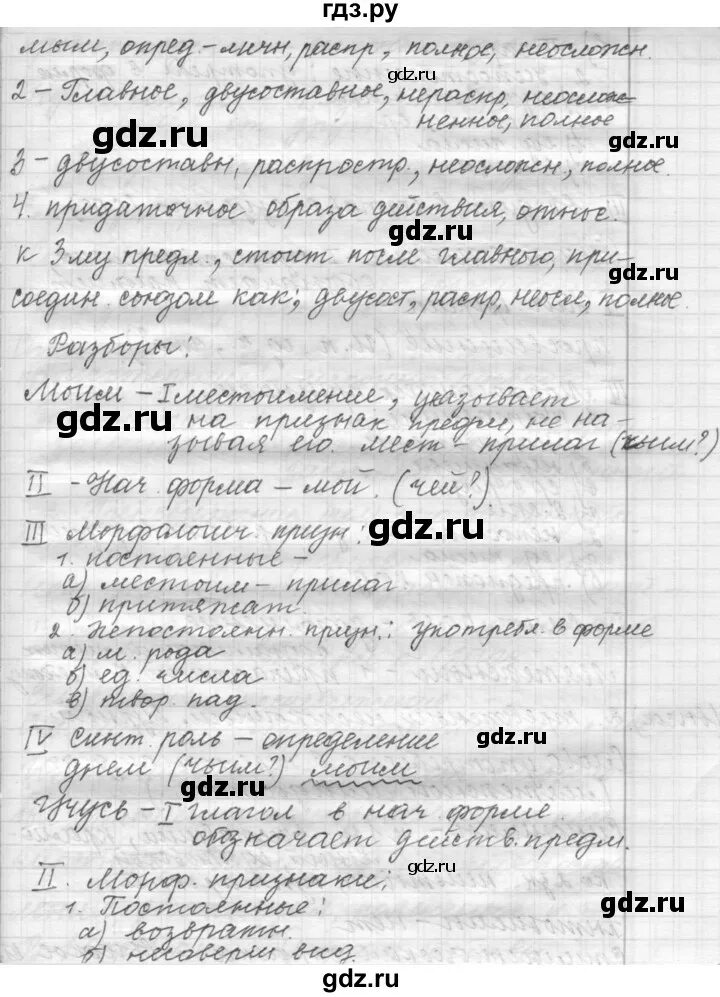 гдз.ру
мым, опред.-личн, распр, полное, неосложн.
2 - Главное, двусоставное, нераспр, неослож-
ненное, полное
gdz.ru
3 - двусоставн, распростр., неосложн, полное.
gdz.ru
4. придаточное образа действия, относ.
gdz.ru
к 3му предл., стоит после главного, при-
gdz.ru
соедин. союзом как; двусост, распр, неосл, полное.
Разборы:
gdz.ru
Моим - I местоимение, указывает
gdz.ru
на признак предм, не на-
зывая его. мест - прилаг (чьим?)
II - Нач. форма - мой. (чей?)
gdz.ru
III Морфологич. призн:
1. постоянные -
а) местоим - прилаг.
gdz.ru
б) притяжат.
2. Непостоянн. призн.: употребл. в форме
а) м. рода
б) ед. числа
gdz.ru
в) твор. пад.
IV Синт. роль - определение
gdz.ru
днем (чьим?) моим
Учусь - I глагол в нач. форме.
gdz.ru
обозначает действ. предм.
II. Морф. признаки:
gdz.ru
1. Постоянные:
а) возвратн.
gdz.ru
б) несоверш вид.
gdz.ru